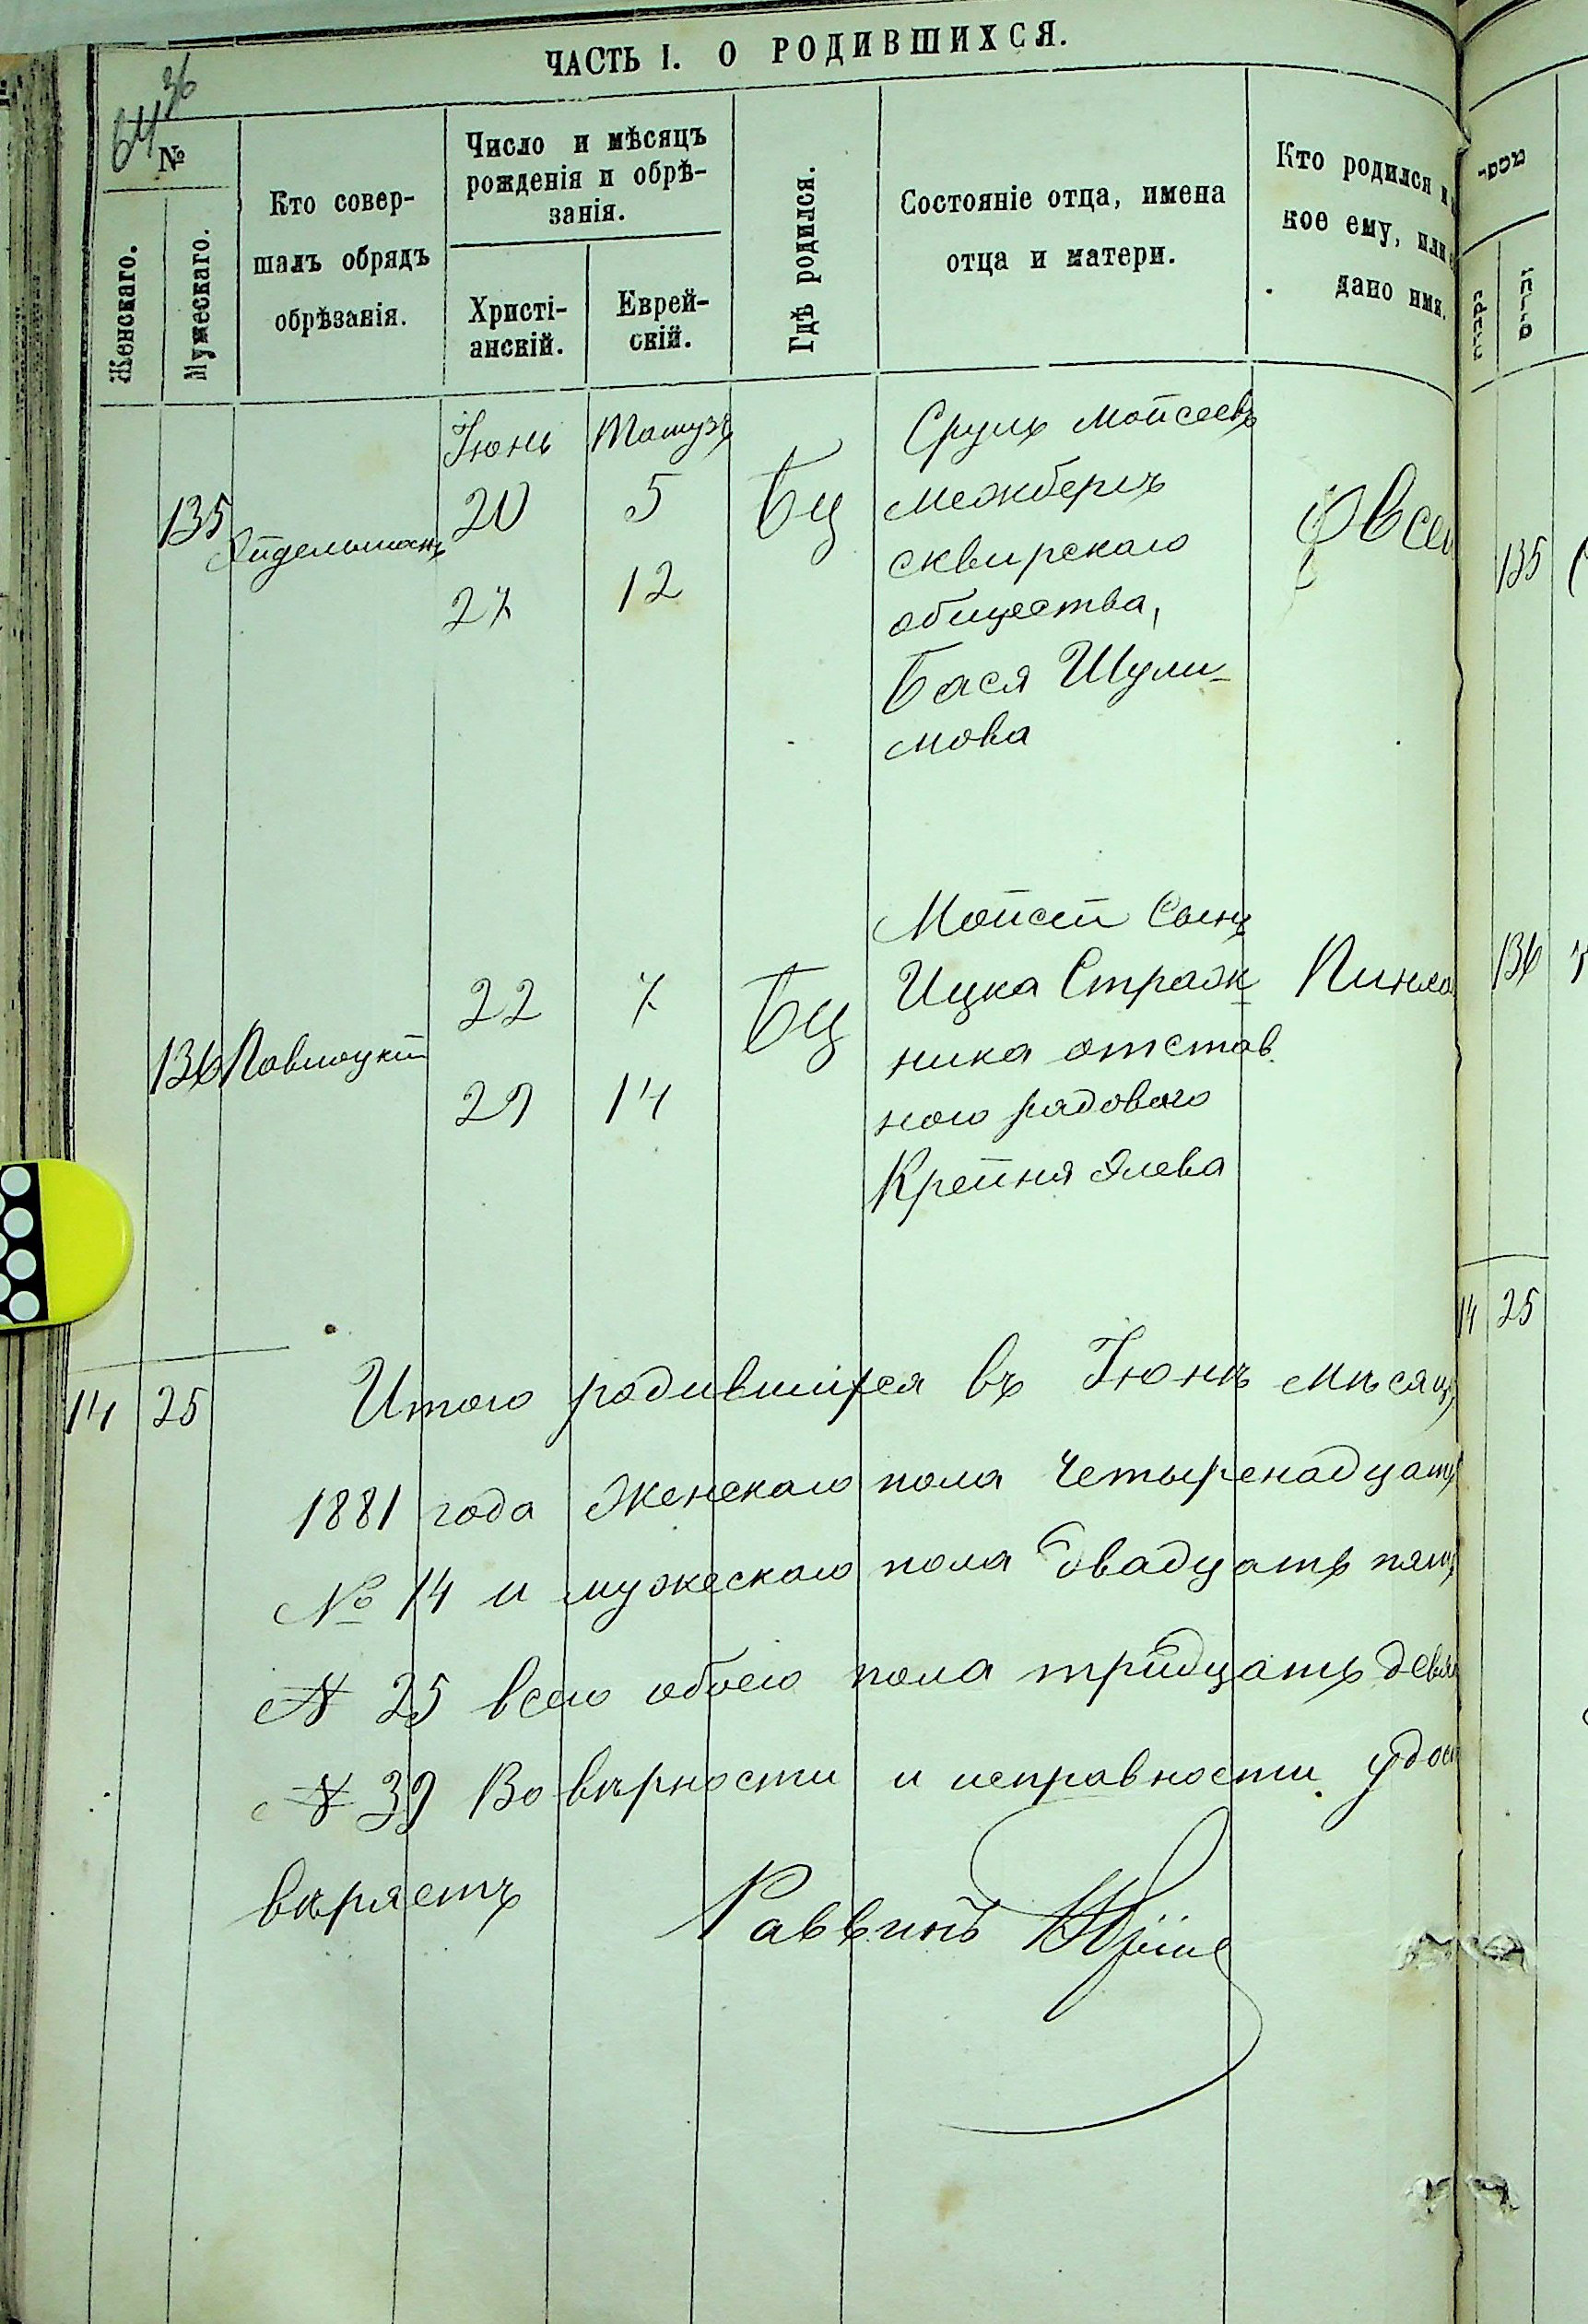 ЧАСТЬ I. О РОДИВШИХСЯ.
64
36
№
Женскаго.
Мужескаго.
Кто совер-
шалъ обрядъ
обрѣзанія.
Число и мѣсяцъ
рожденія и обрѣ-
занія.
Христі-
анскій.
Еврей-
скій.
Гдѣ родился.
Состояніе отца, имена
отца и матери.
Кто родился и
кое ему, или
дано имя.
135
Эйдельманъ
Іюнь
20
27
Тамузъ
5
12
БЦ
Сруль Мойсеевъ
Межбергъ
сквирскаго
общества,
Бася Шули-
мова
Овсе
135
136
Павлоцкій
22
29
7
14
БЦ
Мойсей Сынъ
Ицка Страж-
ника отстав-
ного рядового
Крейня Элева
Пинха
136
14 25
14 25
Итого родившихся въ Іюнѣ мѣсяцѣ
1881 года женскаго пола четыренадцать
№ 14 и мужескаго пола двадцать пять
№ 25 всего обоего пола тридцать девя
№ 39 Во вѣрности и исправности удос
вѣряетъ
Раввинъ